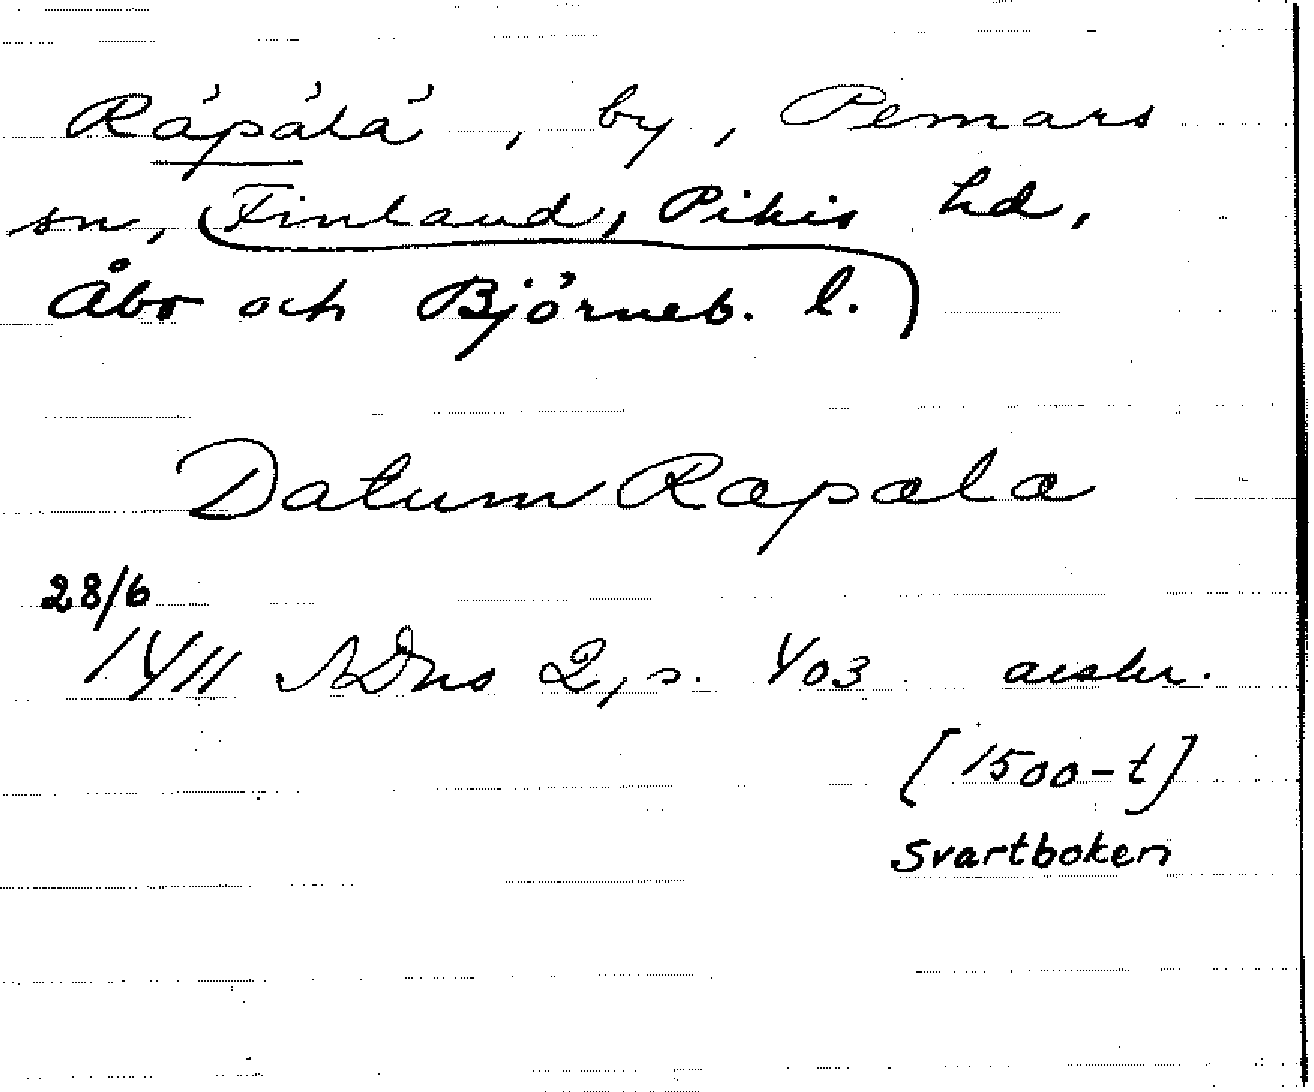 Räpälä, by, Pemars
sn, Finland, Pikis hd,
Åbo och Björneb. l.)
Datum Rapala
28/6
1411 SDns 2, s. 403 avskr.
[1500-t]
Svartboken